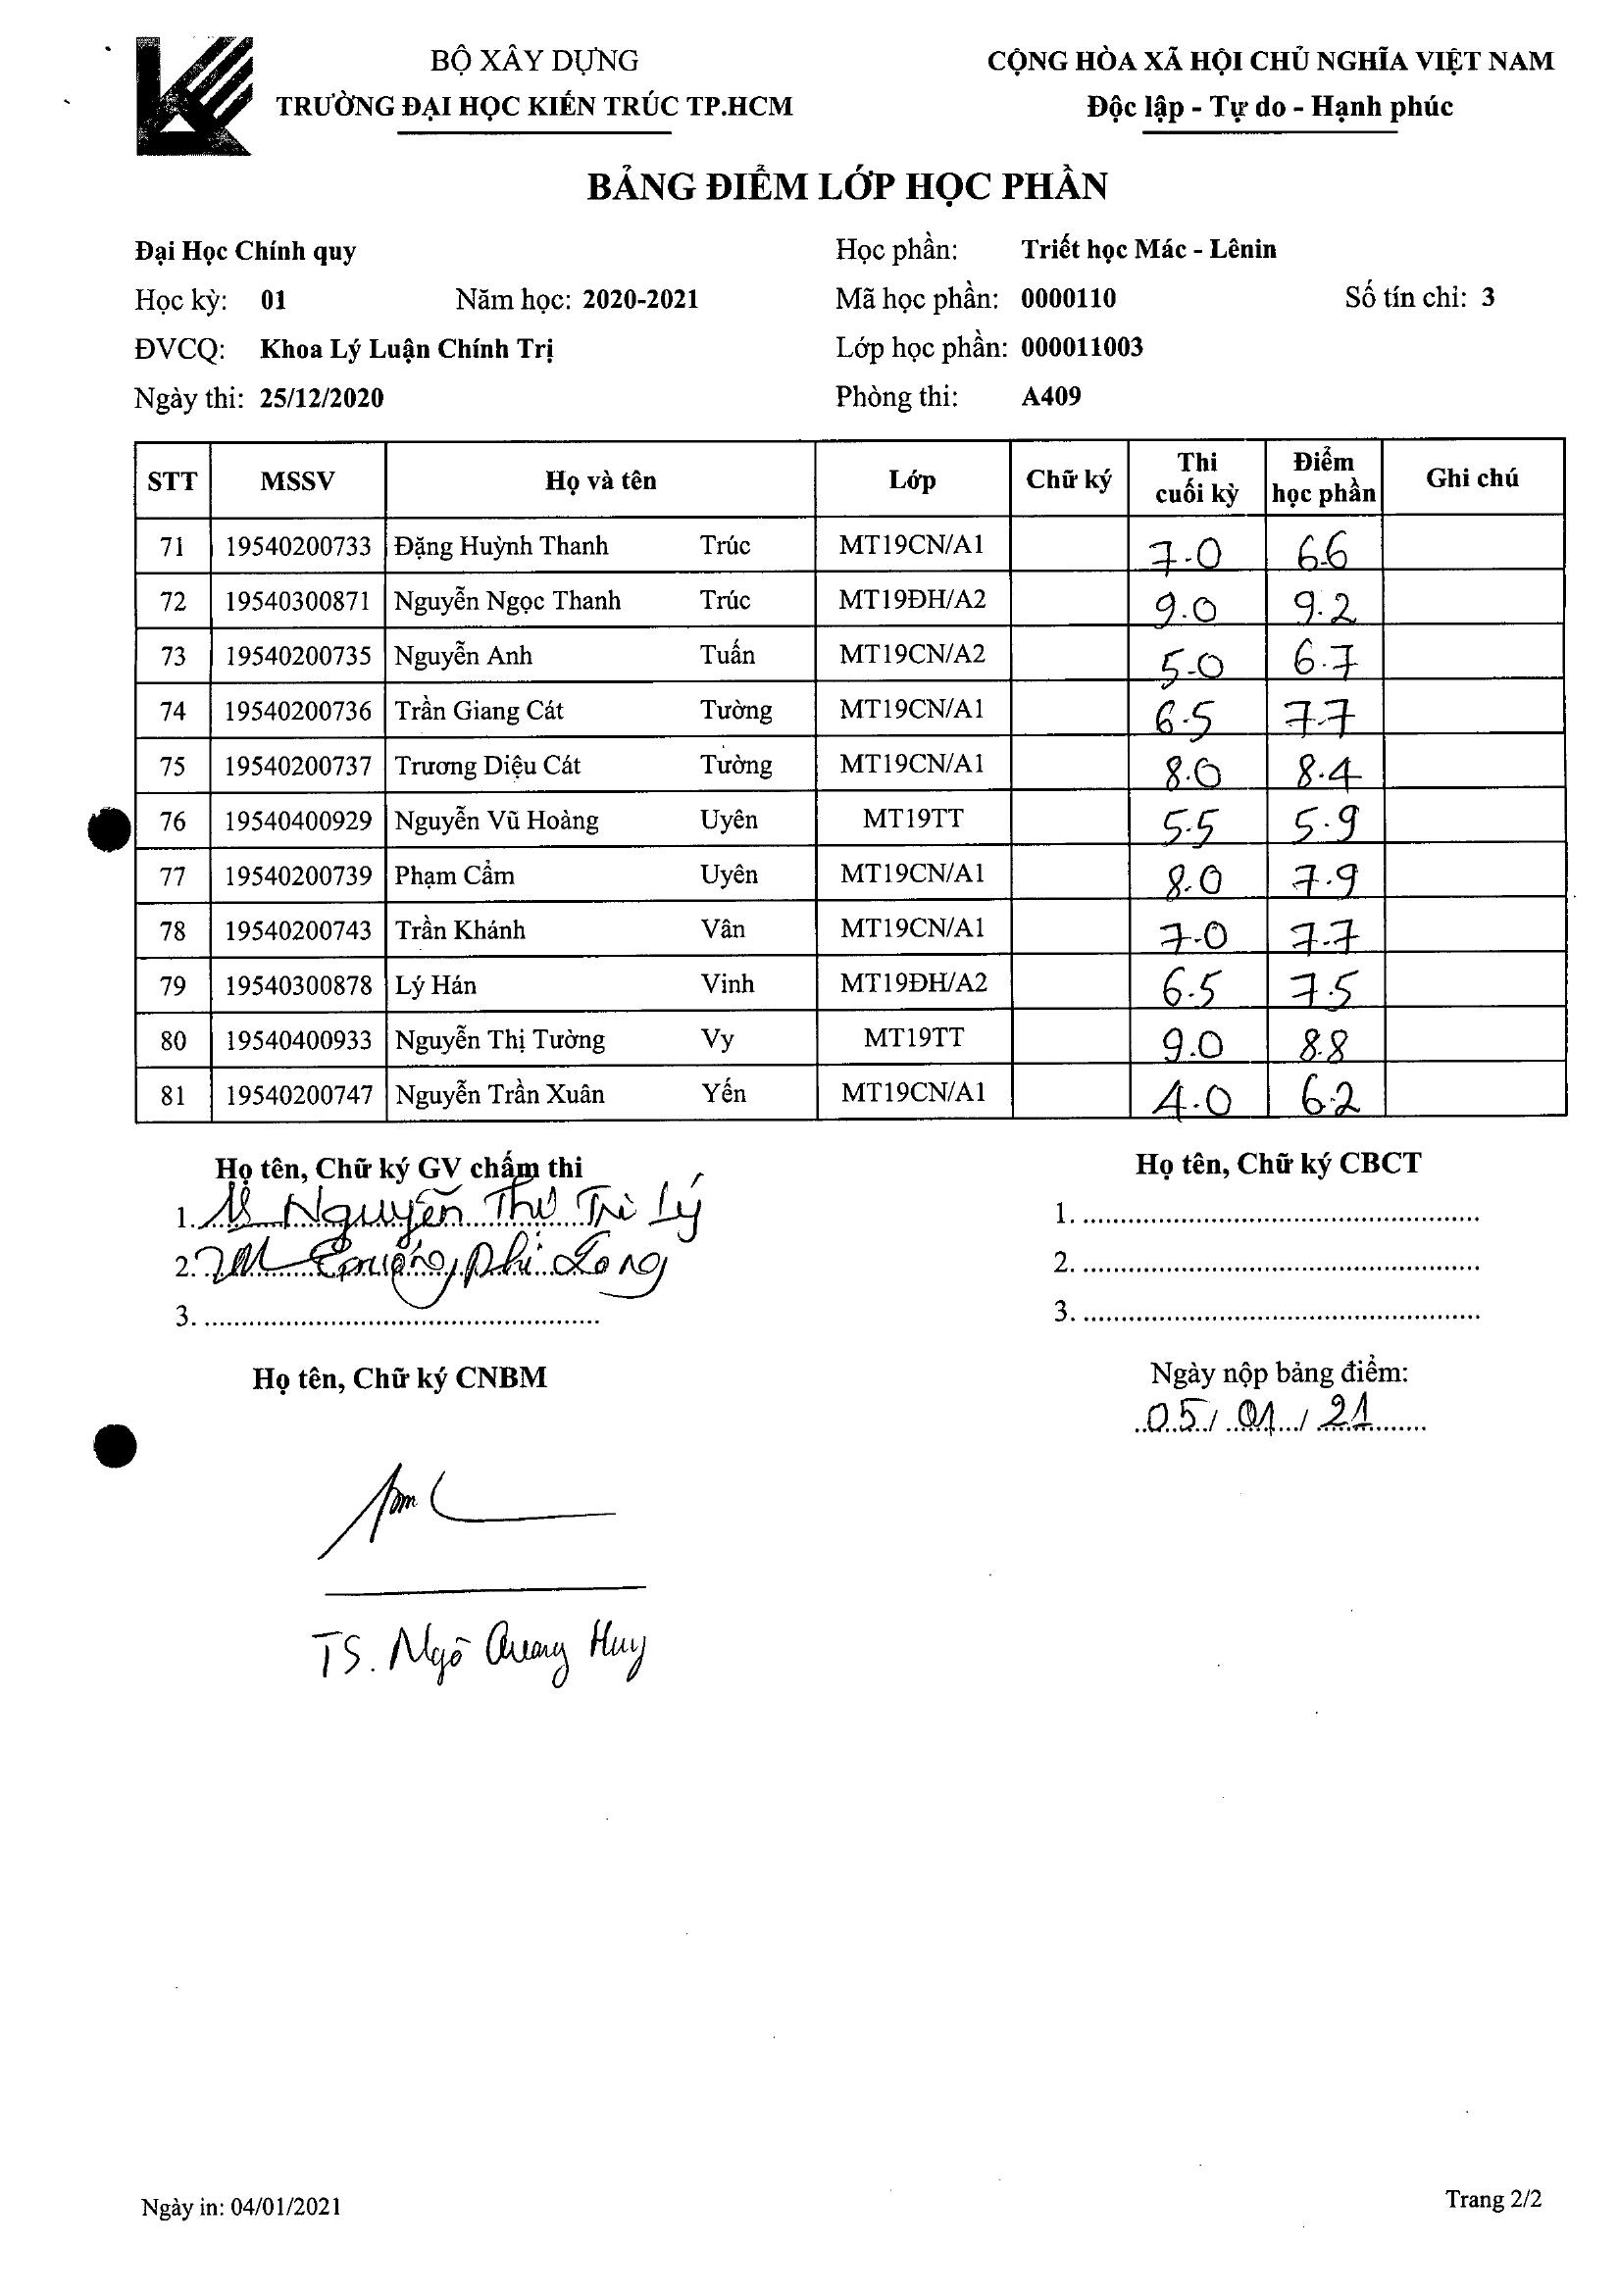 BỘ XÂY DỰNG
TRƯỜNG ĐẠI HỌC KIẾN TRÚC TP.HCM
CỘNG HÒA XÃ HỘI CHỦ NGHĨA VIỆT NAM
Độc lập - Tự do - Hạnh phúc
BẢNG ĐIỂM LỚP HỌC PHẦN
Đại Học Chính quy
Học phần: Triết học Mác - Lênin
Học kỳ: 01 Năm học: 2020-2021
Mã học phần: 0000110 Số tín chỉ: 3
ĐVCQ: Khoa Lý Luận Chính Trị
Lớp học phần: 000011003
Ngày thi: 25/12/2020
Phòng thi: A409
STT MSSV Họ và tên Lớp Chữ ký Thi cuối kỳ Điểm học phần Ghi chú
71 19540200733 Đặng Huỳnh Thanh Trúc MT19CN/A1 7.0 6.6
72 19540300871 Nguyễn Ngọc Thanh Trúc MT19ĐH/A2 9.0 9.2
73 19540200735 Nguyễn Anh Tuấn MT19CN/A2 5.0 6.7
74 19540200736 Trần Giang Cát Tường MT19CN/A1 6.5 7.7
75 19540200737 Trương Diệu Cát Tường MT19CN/A1 8.0 8.4
76 19540400929 Nguyễn Vũ Hoàng Uyên MT19TT 5.5 5.9
77 19540200739 Phạm Cẩm Uyên MT19CN/A1 8.0 7.9
78 19540200743 Trần Khánh Vân MT19CN/A1 7.0 7.7
79 19540300878 Lý Hán Vinh MT19ĐH/A2 6.5 7.5
80 19540400933 Nguyễn Thị Tường Vy MT19TT 9.0 8.8
81 19540200747 Nguyễn Trần Xuân Yến MT19CN/A1 4.0 6.2
Họ tên, Chữ ký GV chấm thi
1. Nguyễn Thị Trì Lý
2. Trương Phi Long
3.
Họ tên, Chữ ký CBCT
1.
2.
3.
Họ tên, Chữ ký CNBM
Ngày nộp bảng điểm:
05/ 01 / 21
TS. Ngô Quang Huy
Ngày in: 04/01/2021
Trang 2/2